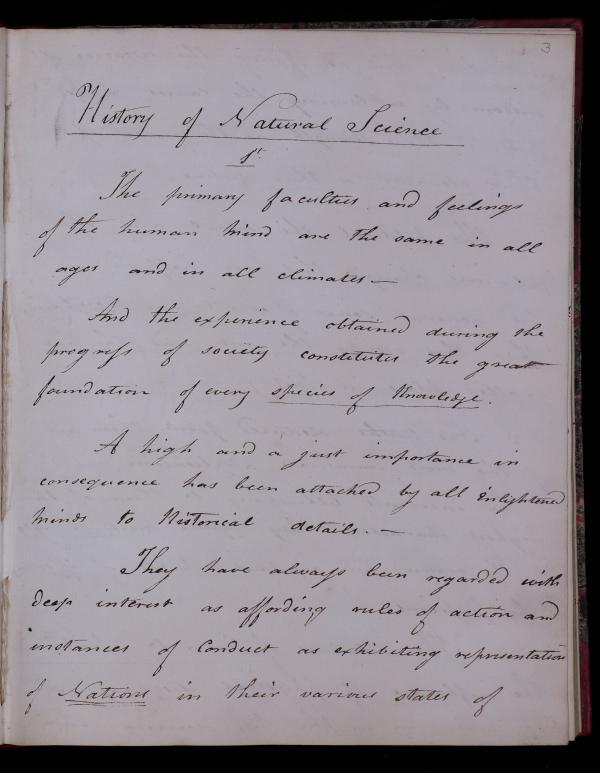 3
History of Natural Science
1st
The primary faculties and feelings
of the human mind are the same in all
ages and in all climates —
And the experience obtained during the
progress of society constitutes the great
foundation of every species of Knowledge.
A high and a just importance in
consequence has been attached by all Enlightened
minds to Historical details. —
They have always been regarded with
deep interest as affording rules of action and
instances of Conduct as exhibiting representations
of Nations in their various states of